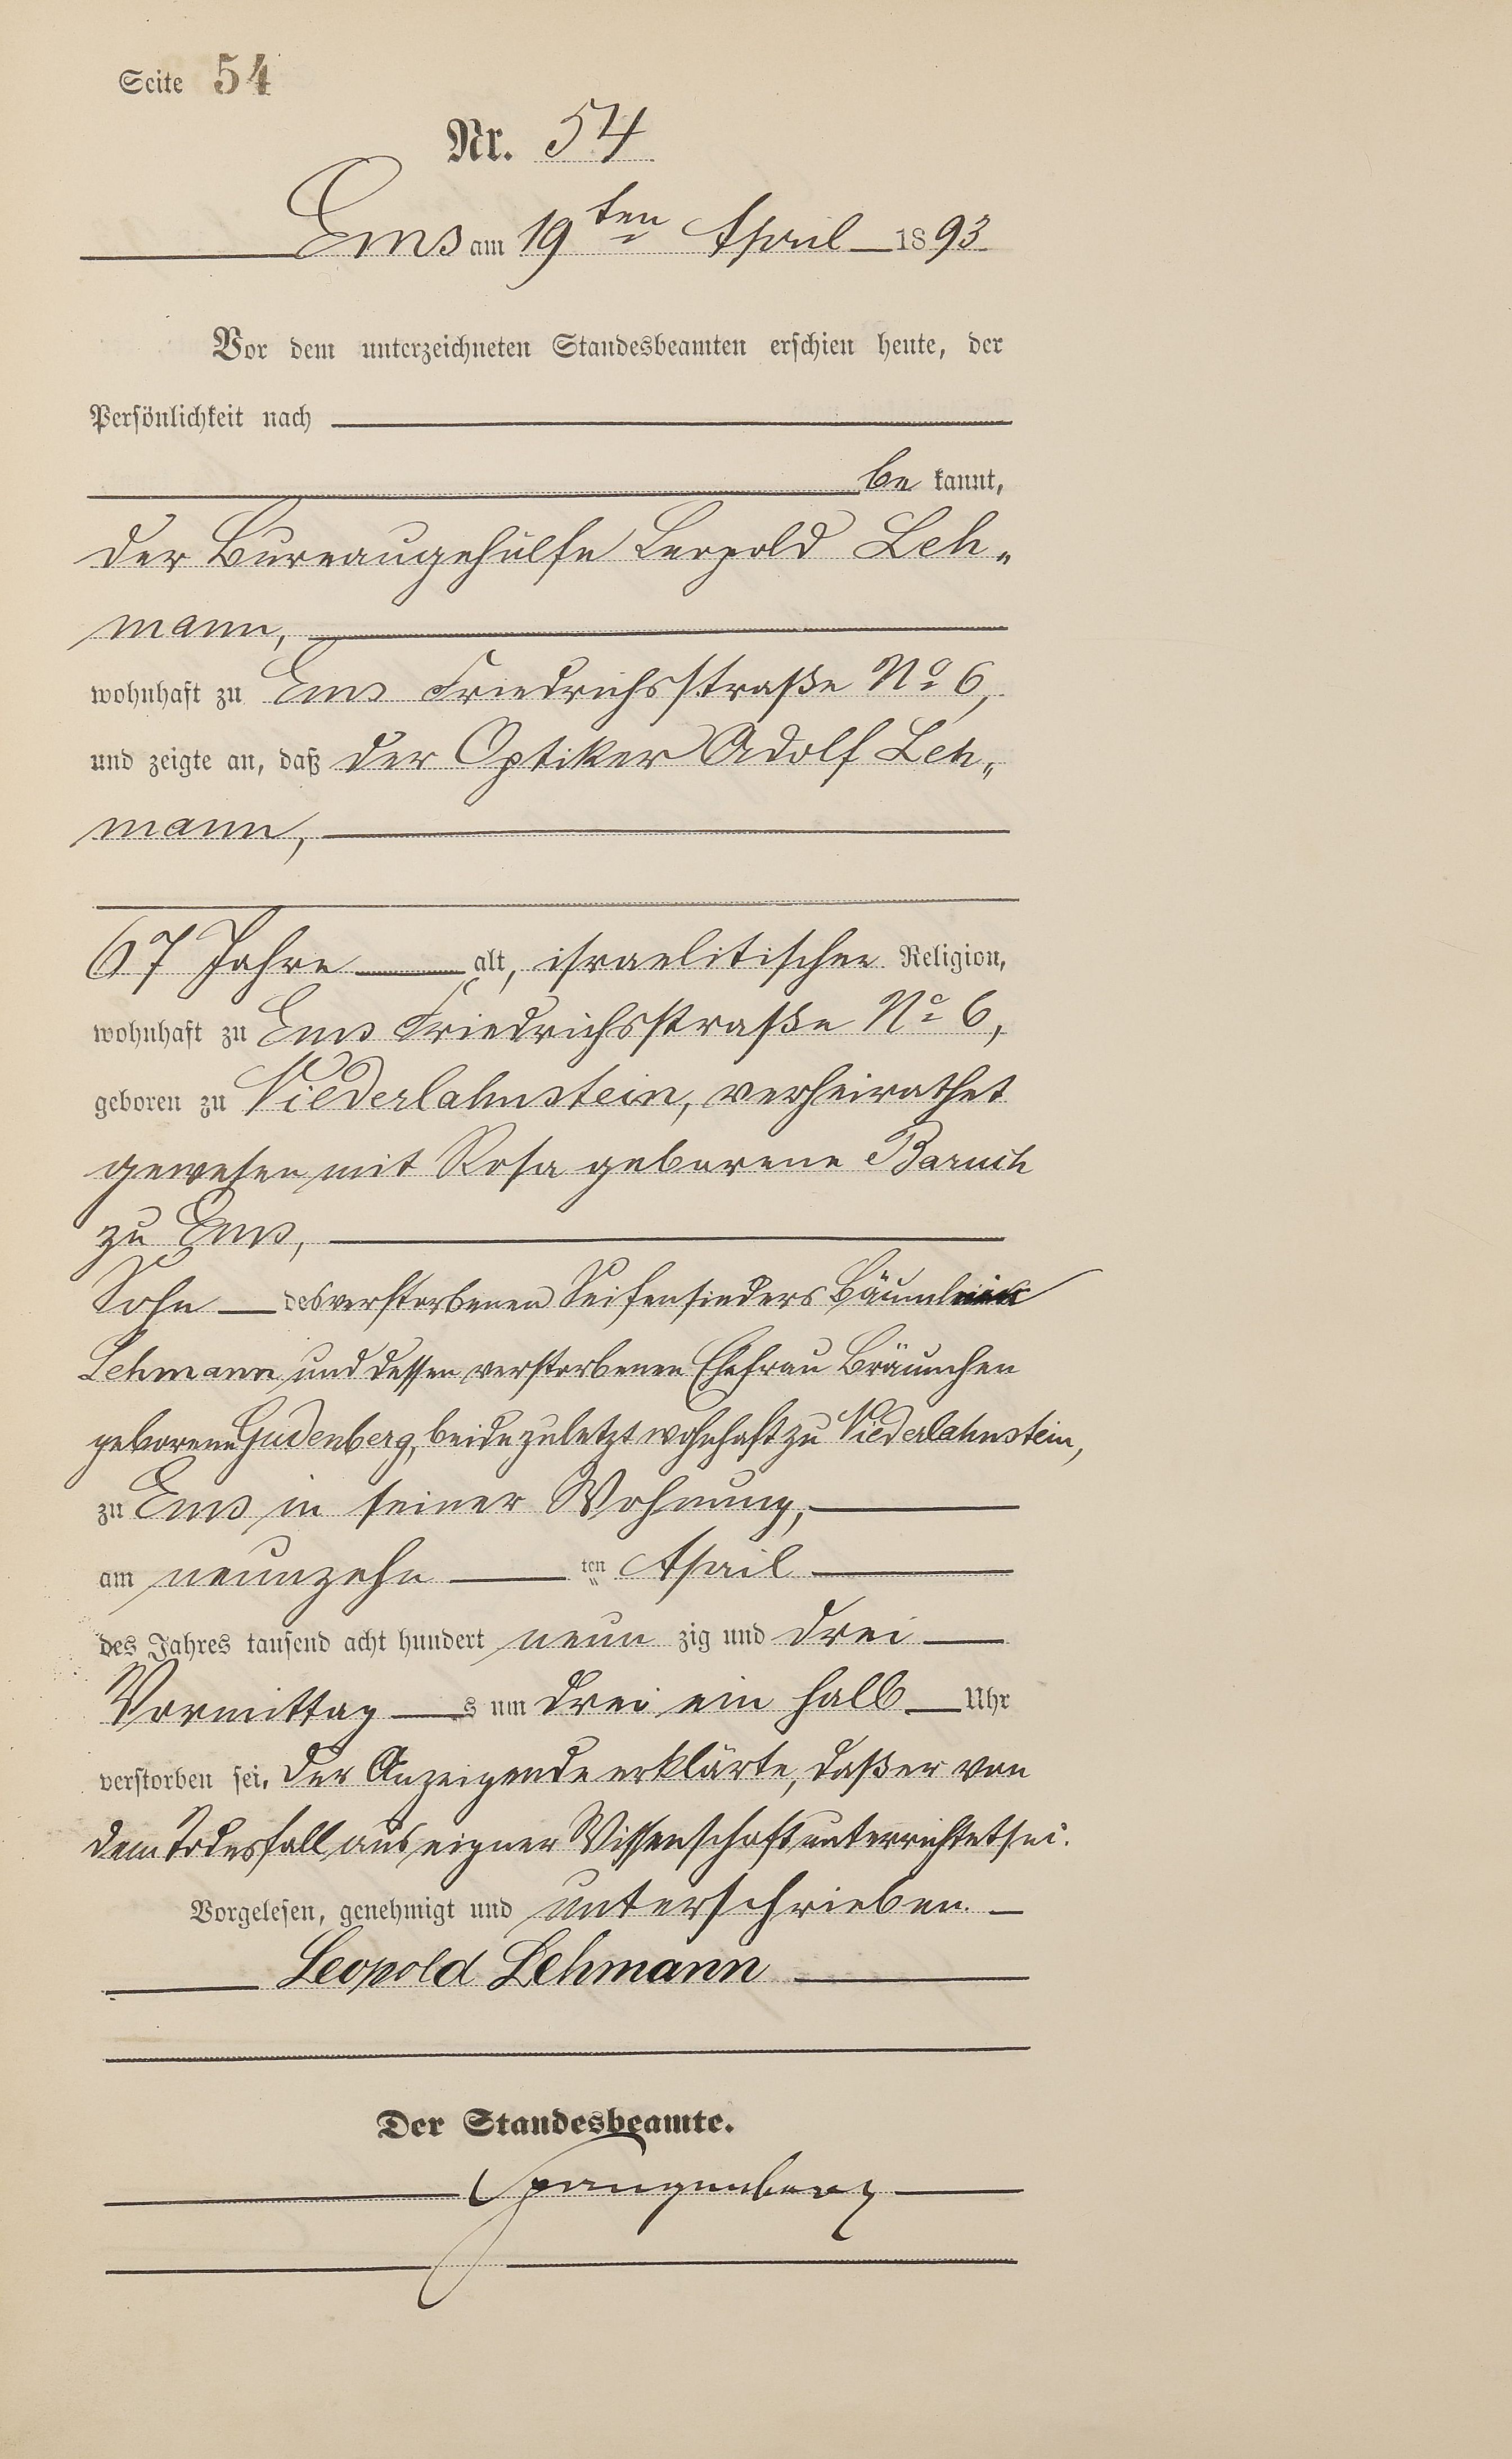 Seite 54
Nr. 54
Ems am 19ten April 1893
Vor dem unterzeichneten Standesbeamten erschien heute, der
Persönlichkeit nach
be kannt,
der Bureaugehülfe Leopold Leh„
mann,
wohnhaft zu Ems Friedrichsstraße No 6,
und zeigte an, daß der Optiker Adolf Leh„
mann,
67 Jahre alt, israelitischer Religion,
wohnhaft zu Ems Friedrichsstraße No 6,
geboren zu Niederlahnstein, verheirathet
gewesen mit Rosa geborene Baruch
zu Ems,
Sohn des verstorbenen Seifensieders
Lehmann und dessen verstorbenen Ehefrau Bräunchen
geborene Gudenberg, beide zuletzt wohnhaft zu Niederlahnstein,
zu Ems in seiner Wohnung,
am neunzehn ten April
des Jahres tausend acht hundert neun zig und drei
Vormittag s um drei ein halb Uhr
verstorben sei. Der Anzeigende erklärte, daß er von
dem Todesfall aus eigner Wissenschaft unterrichtet sei.
Vorgelesen, genehmigt und unterschrieben.
Leopold Lehmann
Der Standesbeamte.
Spangenberg